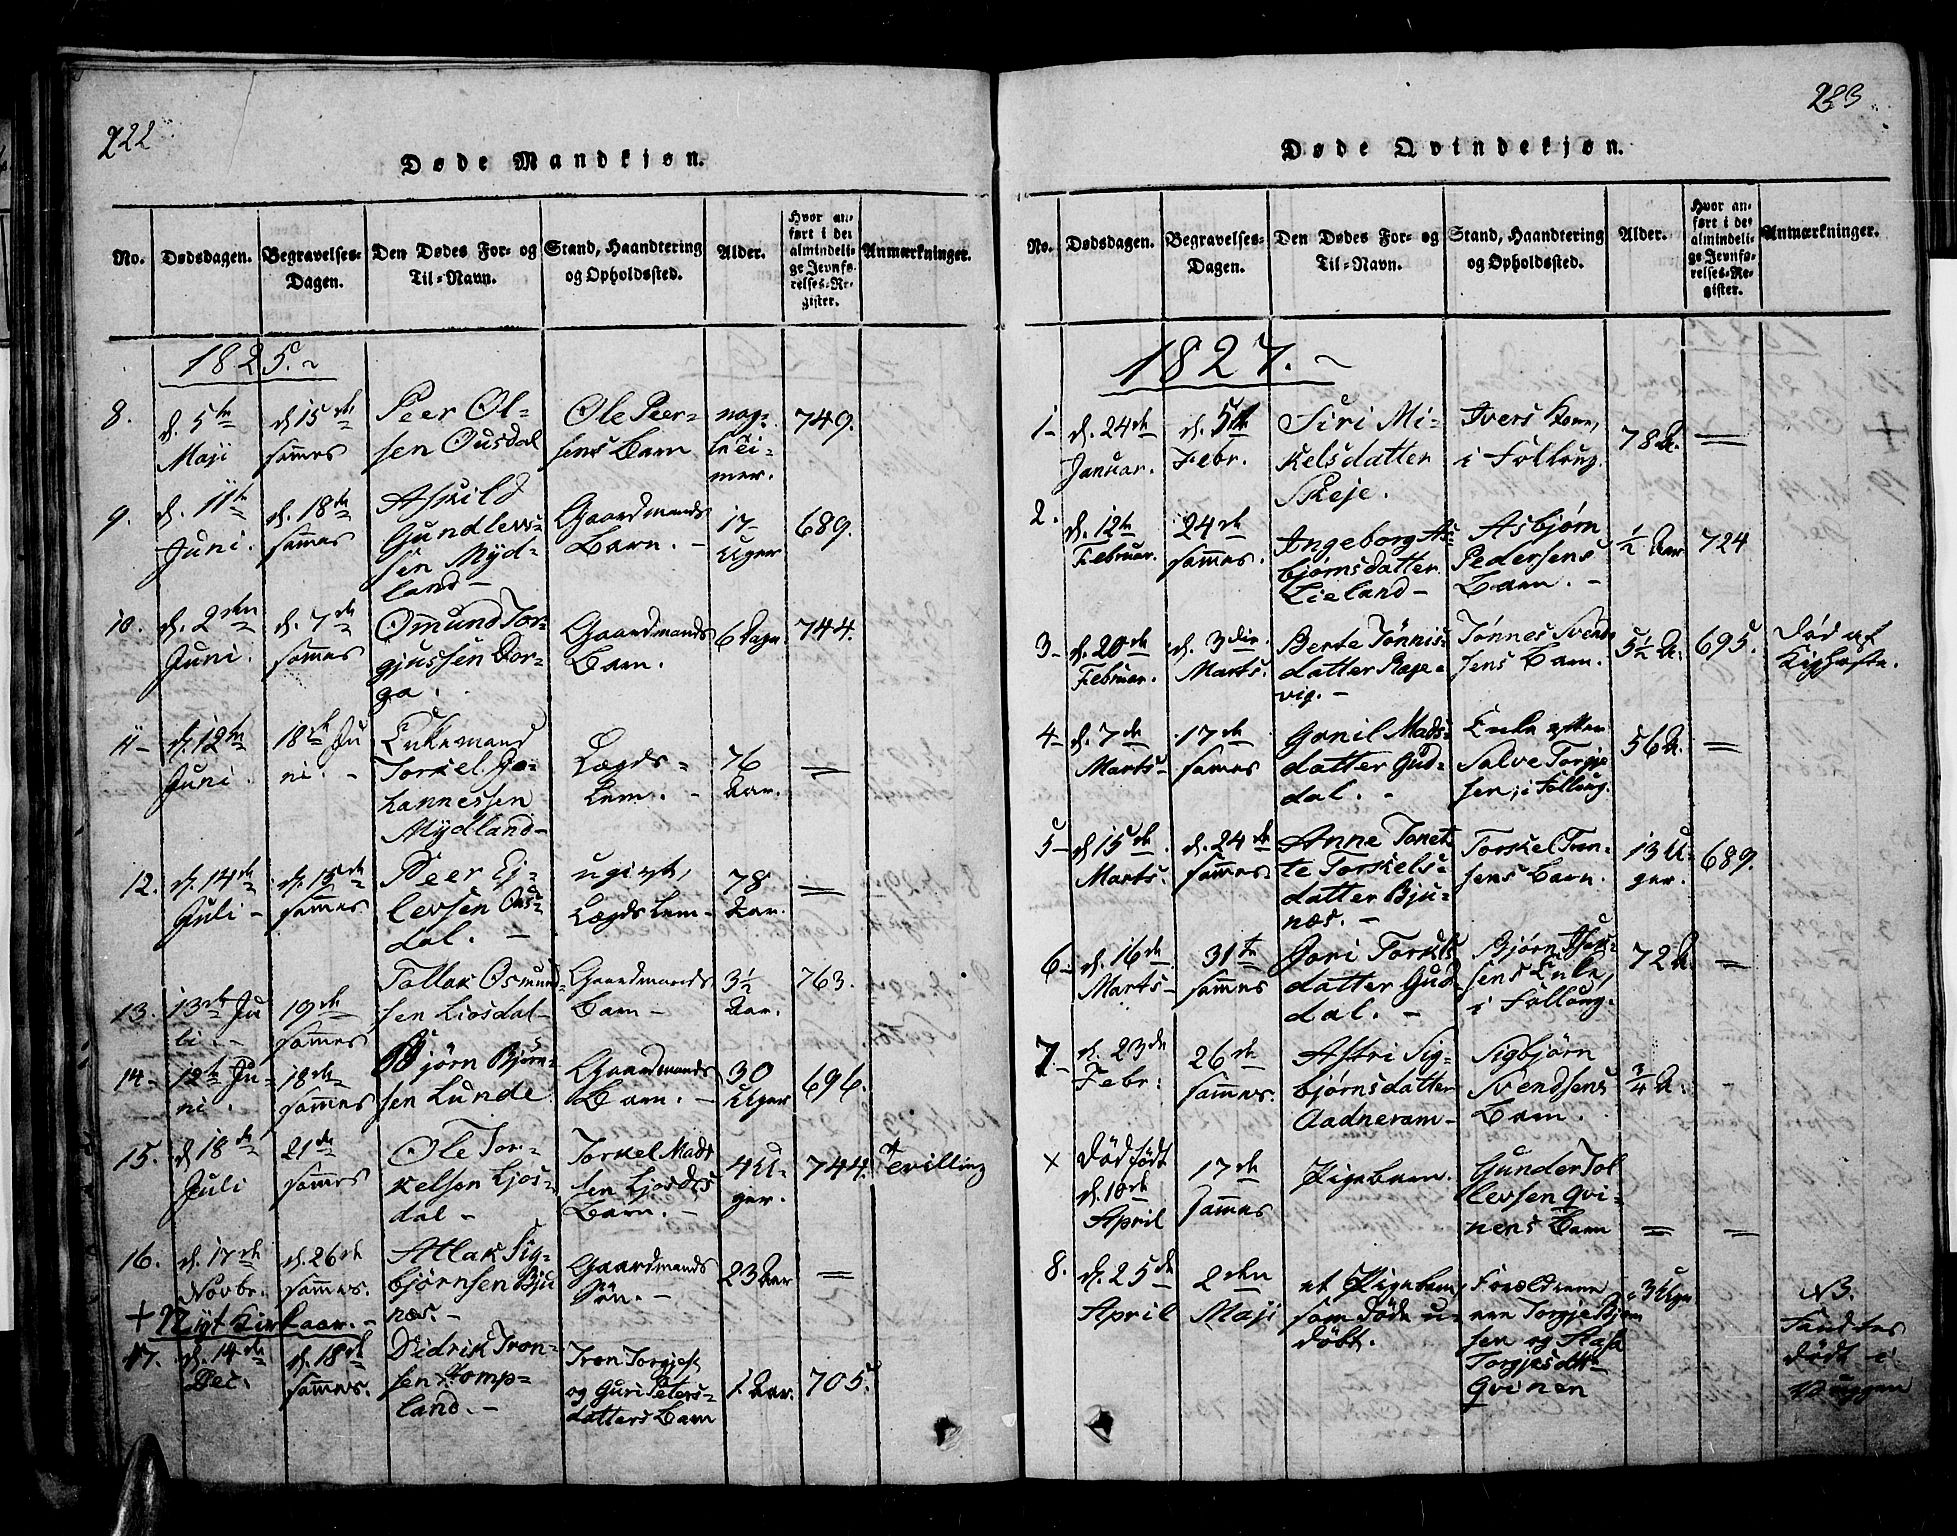 222
Døde Mandkjøn.
No.
Dødsdagen.
Begravelses-
Dagen.
Den Dødes For- og
Til-Navn.
Stand, Haandtering
og Opholdssted.
Alder.
Hvor an-
ført i det
almindeli-
ge Jevnfø-
relses-Re-
gister.
Anmærkninger.
1825.
8.
d. 5te
Maji
d. 15de
sammes
Peer Ol-
sen Ousdal
Ole Peer-
sens Barn
nog-
le Ti-
mer.
749.
9.
d. 11te
Juni.
d. 18de
sammes
Askild
Gundlevs-
sen Myd-
land
Gaardmands
Barn.
17
Uger
689.
10.
d. 2den
Juni.
d. 7de
sammes
Omund Tor-
gjussen Dor-
ga.
Gaardmands
Barn.
6 Dage
744.
11
d. 12te
Juni.
18de Ju
ni.
Enkemand
Torkel Jo-
hannessen
Mydland
Lægds-
Lem.
76
Aar.
12.
d. 14de
Juli
d. 15de
sammes
Peer Ej-
levsen Ous-
dal.
ugivt,
Lægds Lem
78
Aar.
13.
13de Ju
li.
19de
sammes
Tollak Osmund-
sen Liosdal
Gaardmands
Barn
3½
Aar.
763.
14
12te Ju-
ni.
18de
sammes
Bjørn Bjørn-
sen Lunde
Gaardmands
Barn.
30
Uger
696.
15.
d 18de
Juli
21de
sammes
Ole Tor-
kelsen Ljos-
dal
Torkel Mads
sen Ljosdals
Barn.
4 U-
ger.
744.
Tvilling
16.
d. 17de
Novbr.
d. 26de
sammes.
Atlak Sig-
bjørnsen Bju
næs.
Gaardmands
Søn.
23 Aar
+ Nyt Kirkeaar.
17.
d. 14de
Dec.
d. 18de
sammes.
Didrik Tron-
sen Stomp-
land.
Tron Torgjes
og Guri Peters-
datters Barn
1 Aar.
705.
223
Døde Qvindekjøn.
No.
Dødsdagen.
Begravelses-
Dagen.
Den Dødes For- og
Til-Navn.
Stand, Haandtering
og Opholdssted.
Alder.
Hvor an-
ført i det
almindeli-
ge Jevnfø-
relses-Re-
gister.
Anmærkninger.
1827.
1
d. 24de
Januar.
d. 5te
Febr.
Siri Mi-
kelsdatter
Skeje.
Ivers Kone,
i Følloug.
78 A.
2.
d. 12te
Februar.
24de
sammes.
Ingeborg As-
bjørnsdatter
Lieland
Asbjørn
Pedersens
Barn.
½ Aar
724
3
d. 20de
Februar.
d. 3die
Marts.
Berte Tønnis-
datter Rege-
vig.
Tønnes Svend
sens Barn.
5½ A.
695.
Død af
Kighoste.
4
d. 7de
Marts
17de
sammes
Gonil Mads-
datter Gud-
dal.
Enke efter
Salve Torgje
sen, i Følloug.
56 A.
5
d 15de
Marts.
d. 24de
sammes
Anne Tonet-
te Torkels-
datter Bju-
næs.
Torkel Tron-
sens Barn.
13 U-
ger.
689.
6
d. 16de
Marts
31te
sammes
Gori Torkels
datter Gud-
dal.
Bjørn
sens Enke,
i Følloug.
72 A.
7
d. 23de
Febr:
26de
sammes.
Astri Sig-
bjørnsdatter
Aadneram
Sigbjørn
Svendsens
Barn.
¾ A.
×
Dødfødt
d. 10de
April
17de
sammes
Pigebarn.
Gunder Tol
levsen Qvi-
nens Barn
8.
d. 25de
April
2den
Maji
et Pigebarn
som døde u-
døbt.
Forældrene
ere Torgje Bjørn
sen og
Torgjesdtr
Qvinen
3 Uger
NB.
Fandtes
død i
Vuggen